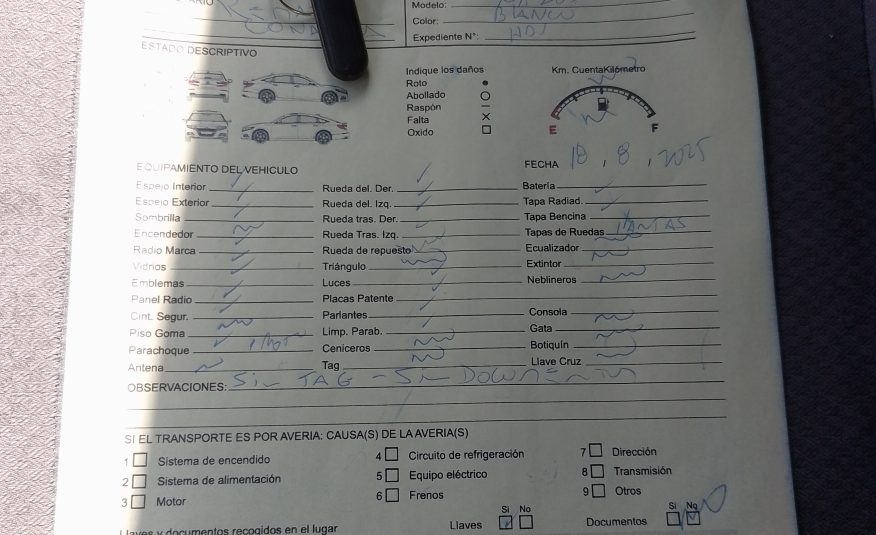 Modelo:
Color: BLANCO
Expediente N°:
ESTADO DESCRIPTIVO
Indique los daños
Roto
Abollado
Raspón
Falta
Oxido
Km. CuentaKilómetro
E F
EQUIPAMIENTO DEL VEHICULO
FECHA 18, 8, 2025
Espejo Interior
Espejo Exterior
Sombrilla
Encendedor
Radio Marca
Vidrios
Emblemas
Panel Radio
Cint. Segur.
Piso Goma
Parachoque
Antena
Rueda del. Der.
Rueda del. Izq.
Rueda tras. Der.
Rueda Tras. Izq.
Rueda de repuesto
Triángulo
Luces
Placas Patente
Parlantes
Limp. Parab.
Ceniceros
Tag
Batería
Tapa Radiad.
Tapa Bencina
Tapas de Ruedas LLANTAS
Ecualizador
Extintor
Neblineros
Consola
Gata
Botiquín
Llave Cruz
OBSERVACIONES: Sin TAG - Sin
SI EL TRANSPORTE ES POR AVERIA: CAUSA(S) DE LA AVERIA(S)
1 Sistema de encendido
2 Sistema de alimentación
3 Motor
4 Circuito de refrigeración
5 Equipo eléctrico
6 Frenos
7 Dirección
8 Transmisión
9 Otros
Llaves y documentos recogidos en el lugar
Llaves Si No
Documentos Si No